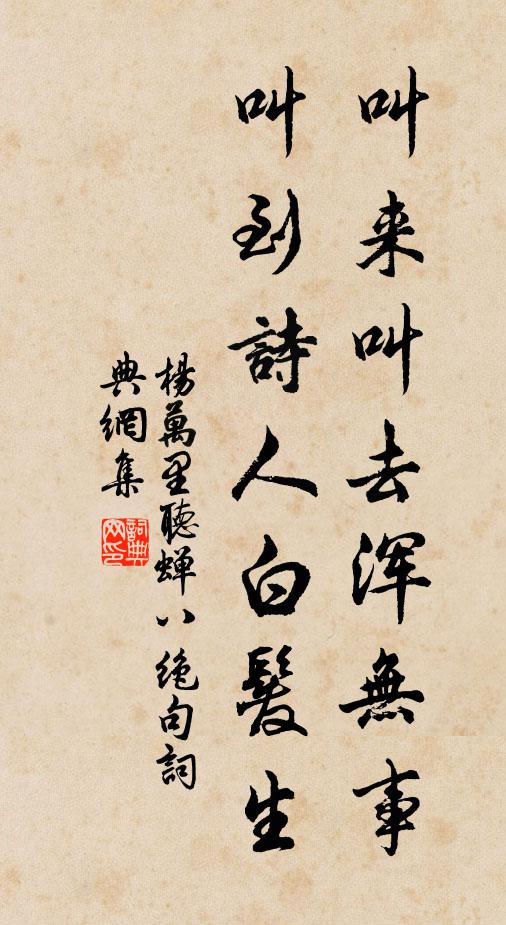 叫来叫去浑無事
叫到詩人白髮生
楊萬里聽蟬八絶句詞
典網集
詞典網印